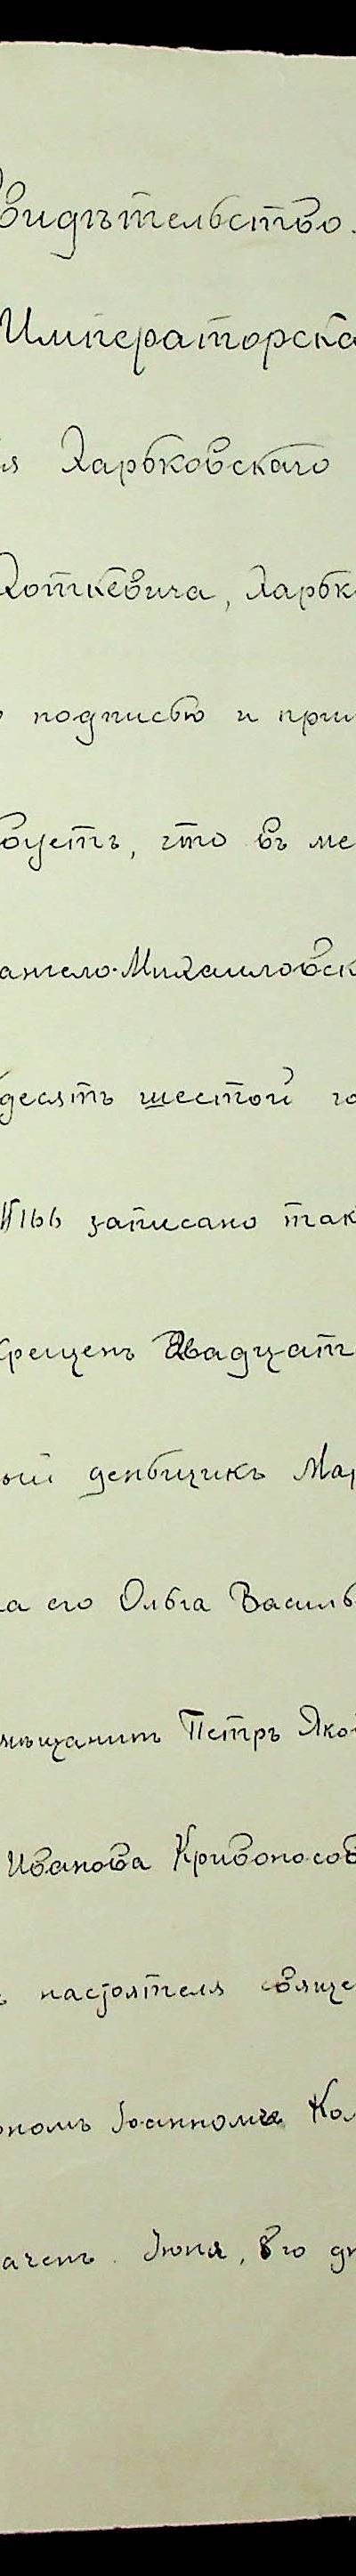 видѣтельство.
Императорска
ія Харьковскаго
Хоткевича, Харьк
ю подписью и прил
вуетъ, что въ ме
ангело-Михаиловск
десятъ шестой го
№166 записано так
крещенъ Двадцат
ный деньщикъ Мар
на его Ольга Василь
мѣщанинъ Петръ Яко
Иванова Кривоносов
ъ настоятеля свяще
ономъ Іоанномъ Кол
аченъ. Іюня, 8го дн